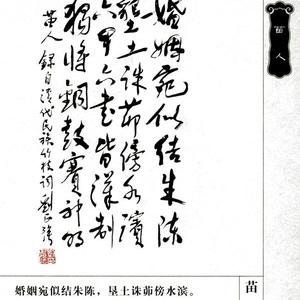 婚姻宛似结朱陈
垦土诛茆傍水滨
六甲六书皆汉制
独将铜鼓赛神明
苗人 录自清代民族竹枝词 刘正强
苗人
婚姻宛似结朱陈，垦土诛茆傍水滨。
苗